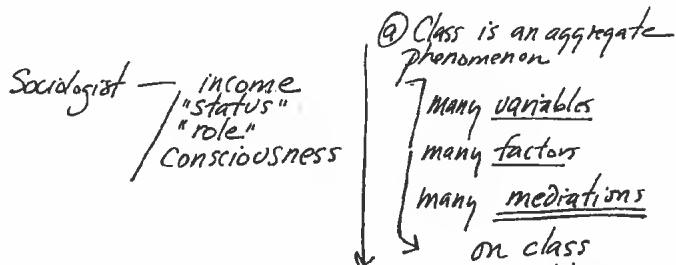 Sociologist — income
"status"
"role"
consciousness
ⓐ Class is an aggregate
phenomenon
many variables
many factors
many mediations
on class